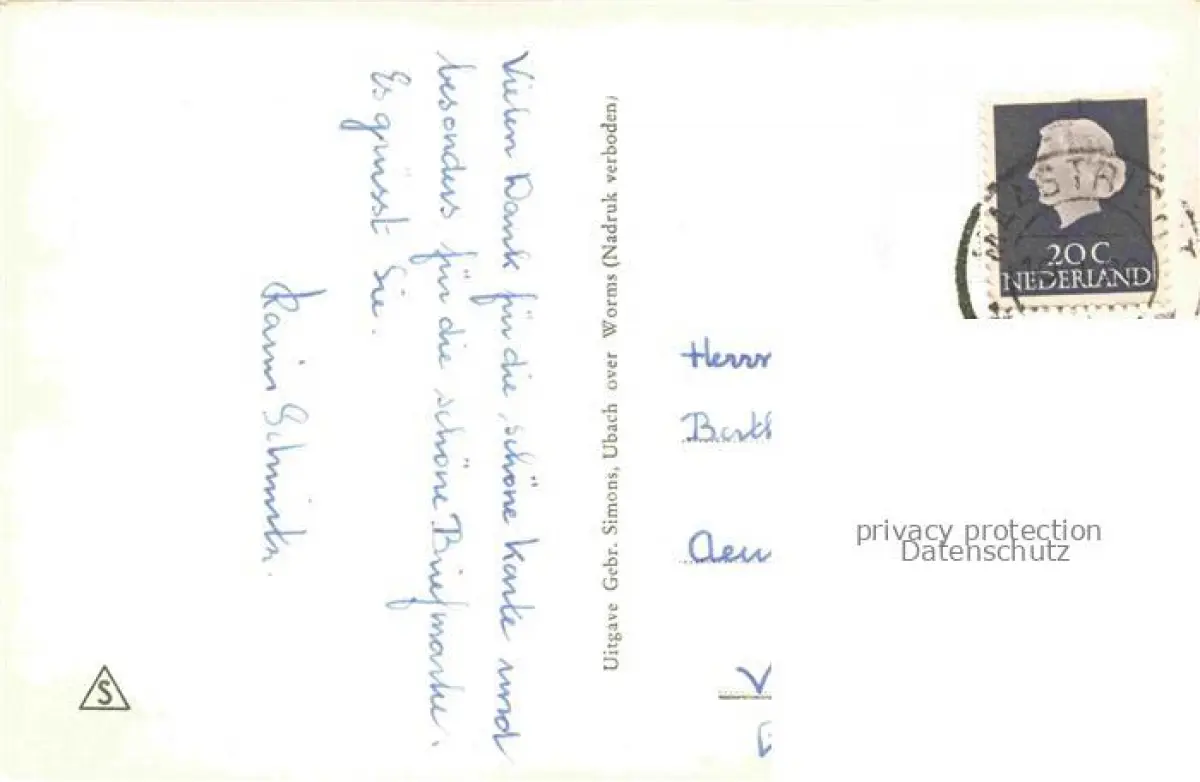 Vielen Dank für die schöne Karte und
besonders für die schöne Briefmarke.
Es grüsst Sie.
Uitgave Gebr. Simons, Ubach over Worms (Nadruk verboden)
20 C
NEDERLAND
Herrn
privacy protection
Datenschutz
S